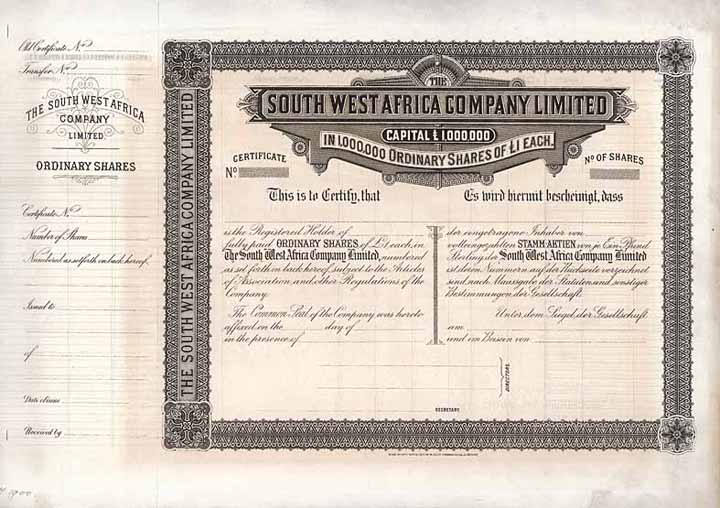 Old Certificate No.
Transfer No.
THE SOUTH WEST AFRICA
COMPANY
LIMITED.
ORDINARY SHARES
Certificate No.
Number of Shares
Numbered as set forth on back hereof.
Issued to
of
Date of issue
Received by
1900
THE SOUTH WEST AFRICA COMPANY LIMITED
THE
SOUTH WEST AFRICA COMPANY LIMITED
CAPITAL £1.000.000
IN 1,000,000 ORDINARY SHARES OF £1 EACH.
CERTIFICATE
No
No OF SHARES
This is to Certify, that
is the Registered Holder of
fully paid ORDINARY SHARES of £1 each, in
The South West Africa Company Limited, numbered
as set forth on back hereof, subject to the Articles
of Association, and other Regulations of the
Company.
The Common Seal of the Company was hereto
affixed on the day of
in the presence of
Es wird hiermit bescheinigt, dass
der eingetragene Inhaber von
volleingezahlten STAMM-AKTIEN von je Ein Pfund
Sterling der South West Africa Company Limited
ist, deren Nummern auf der Rückseite verzeichnet
sind, nach Massgabe der Statuten und sonstiger
Bestimmungen der Gesellschaft.
Unter dem Siegel der Gesellschaft
am
und im Beisein von
DIRECTORS.
SECRETARY.